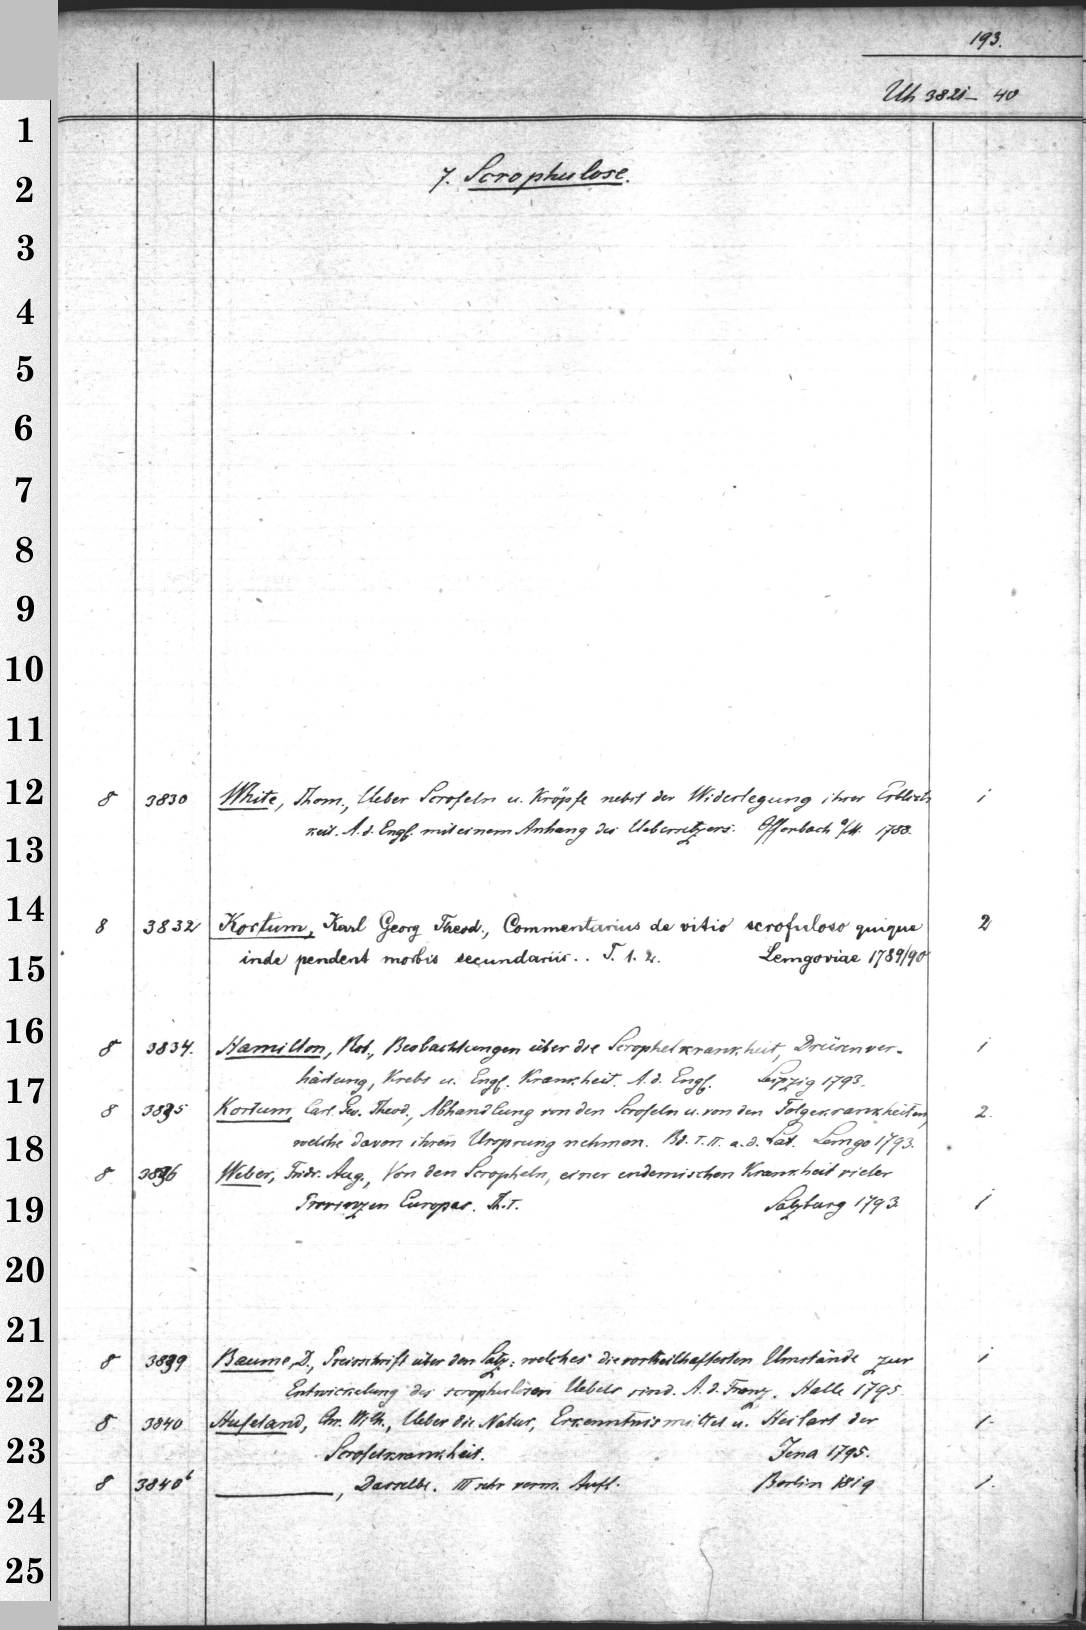 193.
Uh 3821-40
7. Scrophulose.
8 3830 White, Thom., Ueber Scrofeln u. Kröpfe nebst der Widerlegung ihrer Erblich- 1
keit. A. d. Engl. mit einem Anhang des Uebersetzers. Offenbach a/M. 1788.
8 3832 Kortum, Karl Georg Theod., Commentarius de vitio scrofuloso quique 2
inde pendent morbis secundariis.. T. 1. 2. Lemgoviae 1789/90
8 3834. Hamilton, Rob., Beobachtungen über die Scrophelkrankheit, Drüsenver- 1
härtung, Krebs u. Engl. Krankheit. A. d. Engl. Leipzig 1793.
8 3835 Kortum, Carl. Geo. Theod., Abhandlung von den Scrofeln u. von den Folgekrankheiten, 2.
welche davon ihren Ursprung nehmen. Bd. I. II. a. d. Lat. Lemgo 1793.
8 3836 Weber, Fridr. Aug., Von den Scropheln, einer endemischen Krankheit vieler
Provinzen Europas. Th. I. Salzburg 1793. 1
8 3839 Baume, D., Preisschrift über den Satz: welches die vortheilhaftesten Umstände zur 1
Entwickelung des scrophulösen Uebels sind. A. d. Franz. Halle 1795.
8 3840 Hufeland, Chr. Wilh., Ueber die Natur, Erkenntnismittel u. Heilart der 1.
Scrofelkrankheit. Jena 1795.
8 3840b ———, Dasselbe. III sehr verm. Aufl. Berlin 1819 1.
1
2
3
4
5
6
7
8
9
10
11
12
13
14
15
16
17
18
19
20
21
22
23
24
25